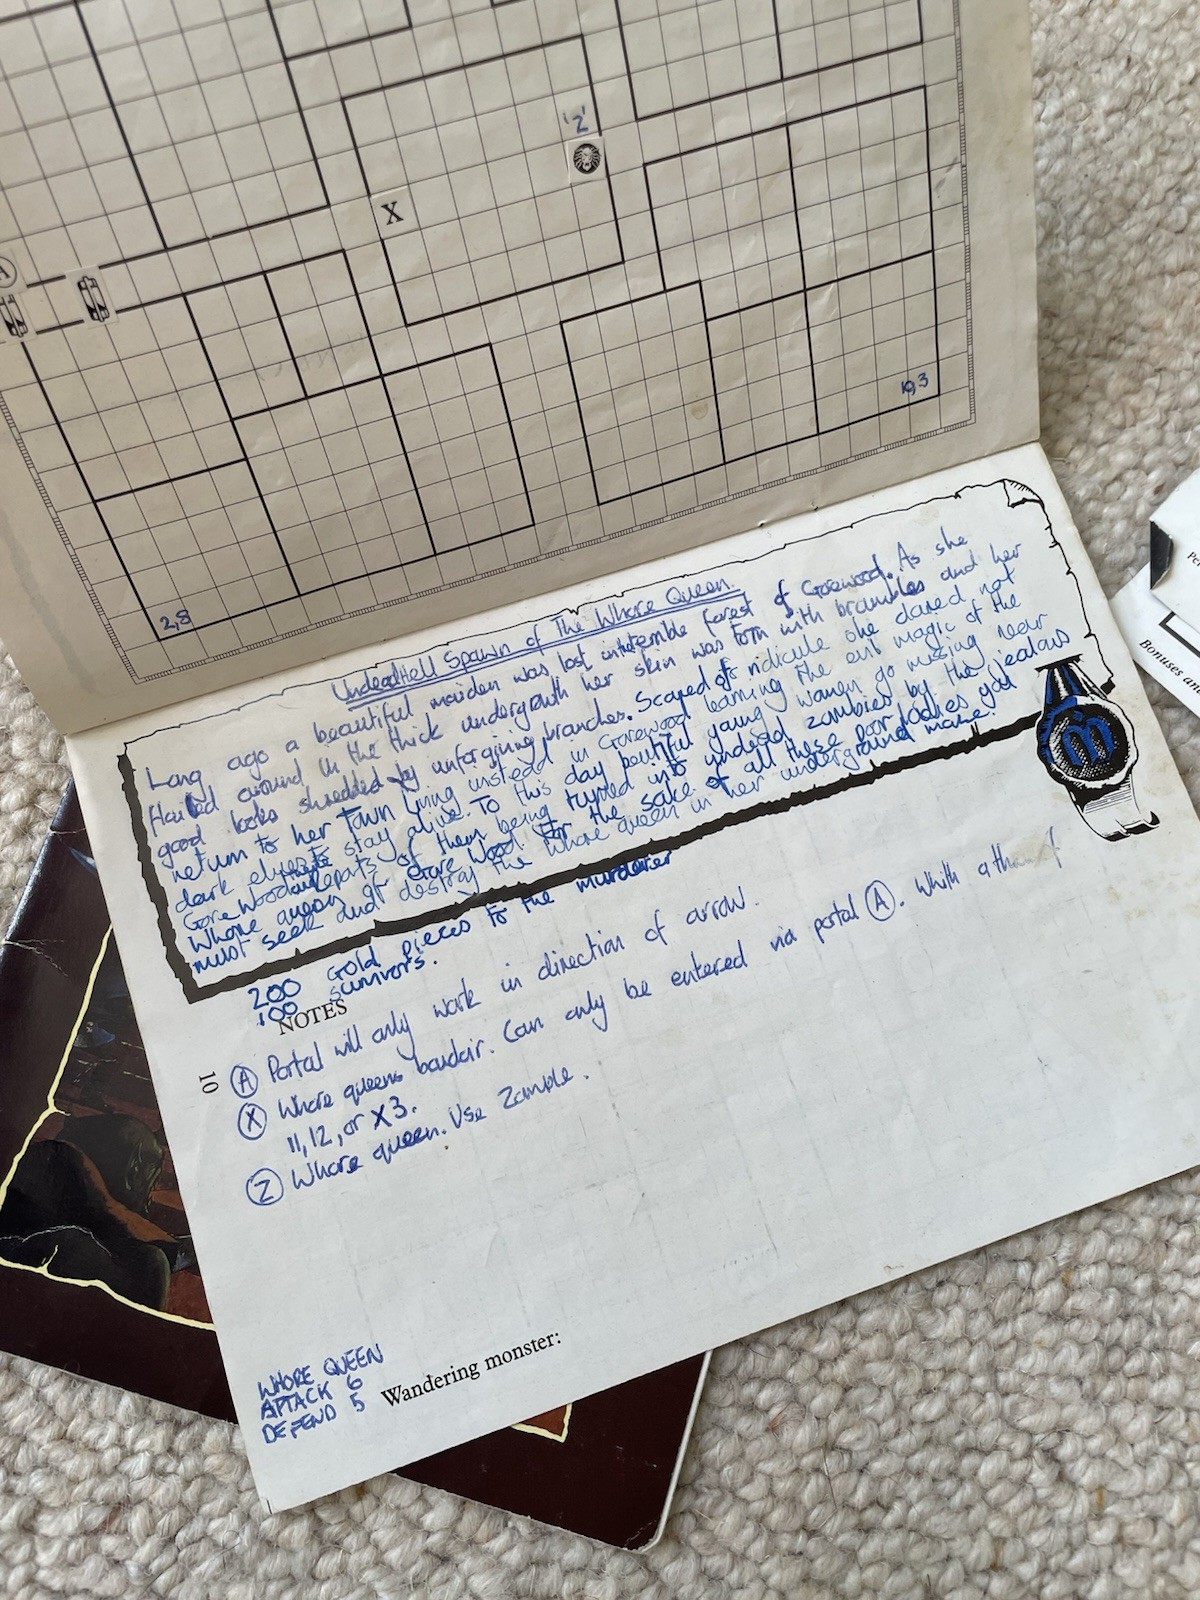 'Z'
X
A
10,3
2,8
Undead Hell Spawn of The Whore Queen.
Long ago a beautiful maiden was lost in terrible forest of Gorewood. As she
flailed around in the thick undergrowth her skin was torn with brambles and her
good looks shredded by unforgiving branches. Scared of ridicule she dared not
return to her town living instead in Gorewood learning the evil magic of the
dark elves to stay alive. To this day beutiful young women go missing near
Gorewood reports of them being turned into undead zombies by the jealous
Whore queen of Gore Wood. For the sake of all these poor locked you
must seek and destroy the Whore queen in her underground
200 Gold pieces to the murderer
100 survivors.
NOTES
10
A Portal will only work in direction of arrow.
X Whore queens boudair. Can only be entered via portal A. Whith a
11, 12, or X3.
Z Whore queen. Use Zombie.
WHORE QUEEN
ATTACK 6
DEFEND 5
Wandering monster:
Bonuses an